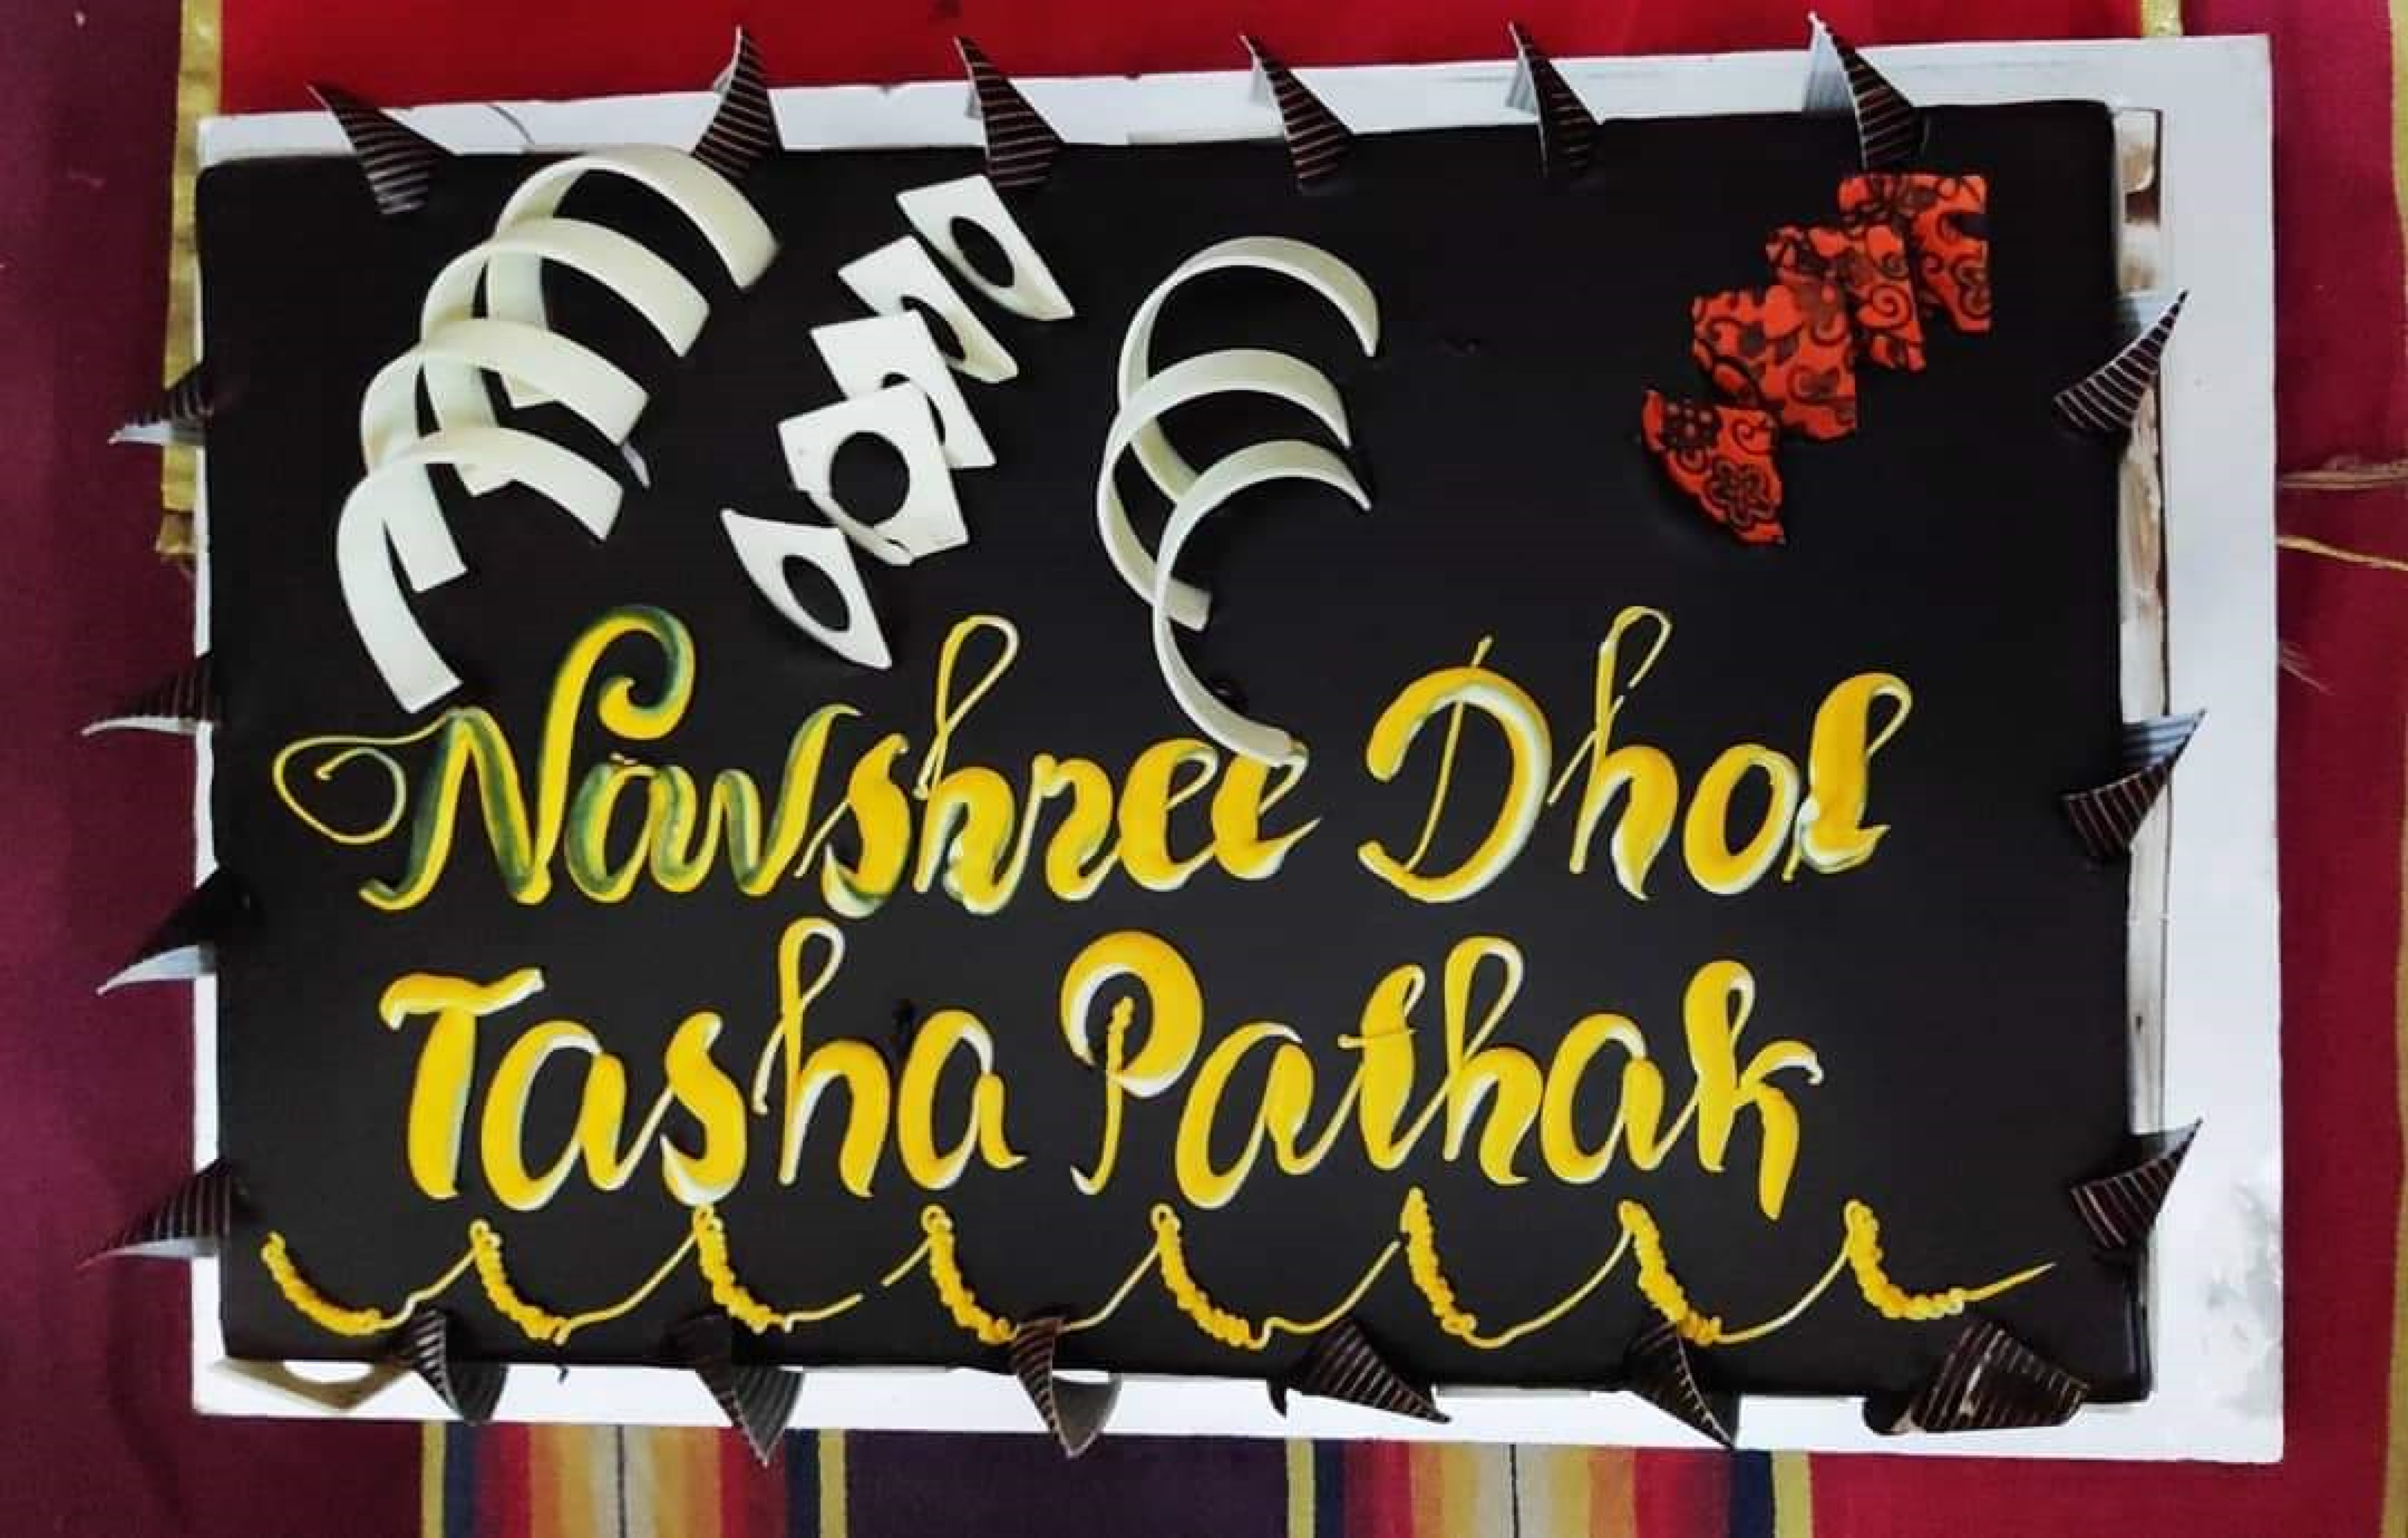 Navshree Dhol
Tasha Pathak